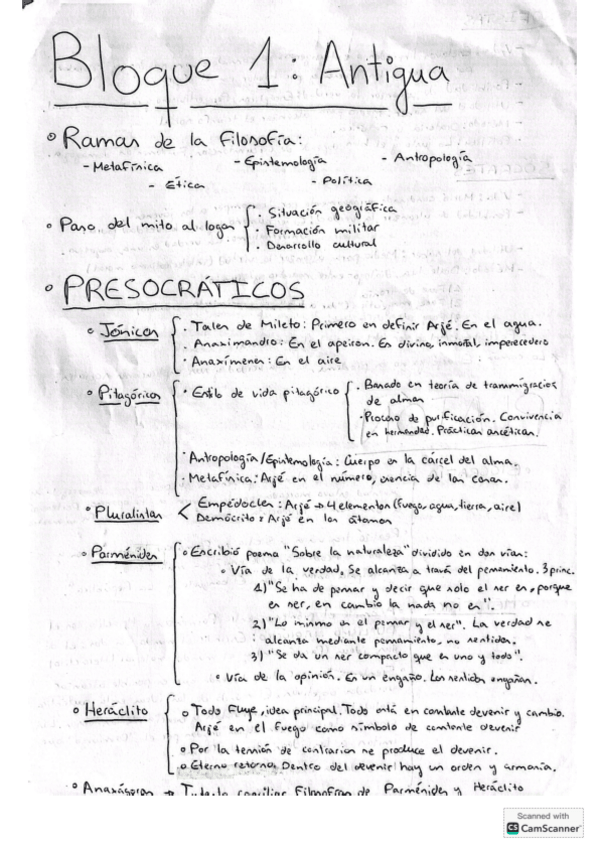 Bloque 1: Antigua
• Ramas de la filosofía:
- Metafísica - Epistemología - Antropología
- Ética - Política
• Paso del mito al logos { · Situación geográfica
· Formación militar
· Desarrollo cultural
• PRESOCRÁTICOS
• Jónicos { · Tales de Mileto: Primero en definir Arjé. En el agua.
· Anaximandro: En el apeiron. Es divino, inmortal, imperecedero
· Anaxímenes: En el aire
• Pitagóricos { · Estilo de vida pitagórico { · Basado en teoría de transmigracios
de almas
· Proceso de purificación. Convivencia
en hermandad. Prácticas ascéticas.
· Antropología/Epistemología: Cuerpo es la cárcel del alma.
· Metafísica: Arjé en el número, esencia de las cosas.
• Pluralistas < Empédocles: Arjé → 4 elementos (fuego, agua, tierra, aire)
Demócrito: Arjé en los átomos
• Parménides { • Escribió poema "Sobre la naturaleza" dividido en dos vías:
• Vía de la verdad. Se alcanza a través del pensamiento. 3 princ.
1) "Se ha de pensar y decir que solo el ser es, porque
es ser, en cambio la nada no es".
2) "Lo mismo es el pensar y el ser". La verdad se
alcanza mediante pensamiento, no sentidos.
3) "Se da un ser compacto que es uno y todo".
• Vía de la opinión. Es un engaño. Los sentidos engañan.
• Heráclito { • Todo Fluye, idea principal. Todo está en constante devenir y cambio.
Arjé en el fuego como símbolo de constante devenir
• Por la tensión de contrarios se produce el devenir.
• Eterno retorno. Dentro del devenir hay un orden y armonía.
• Anaxágoras → conciliar Filosofías de Parménides y Heráclito
Scanned with
CS CamScanner